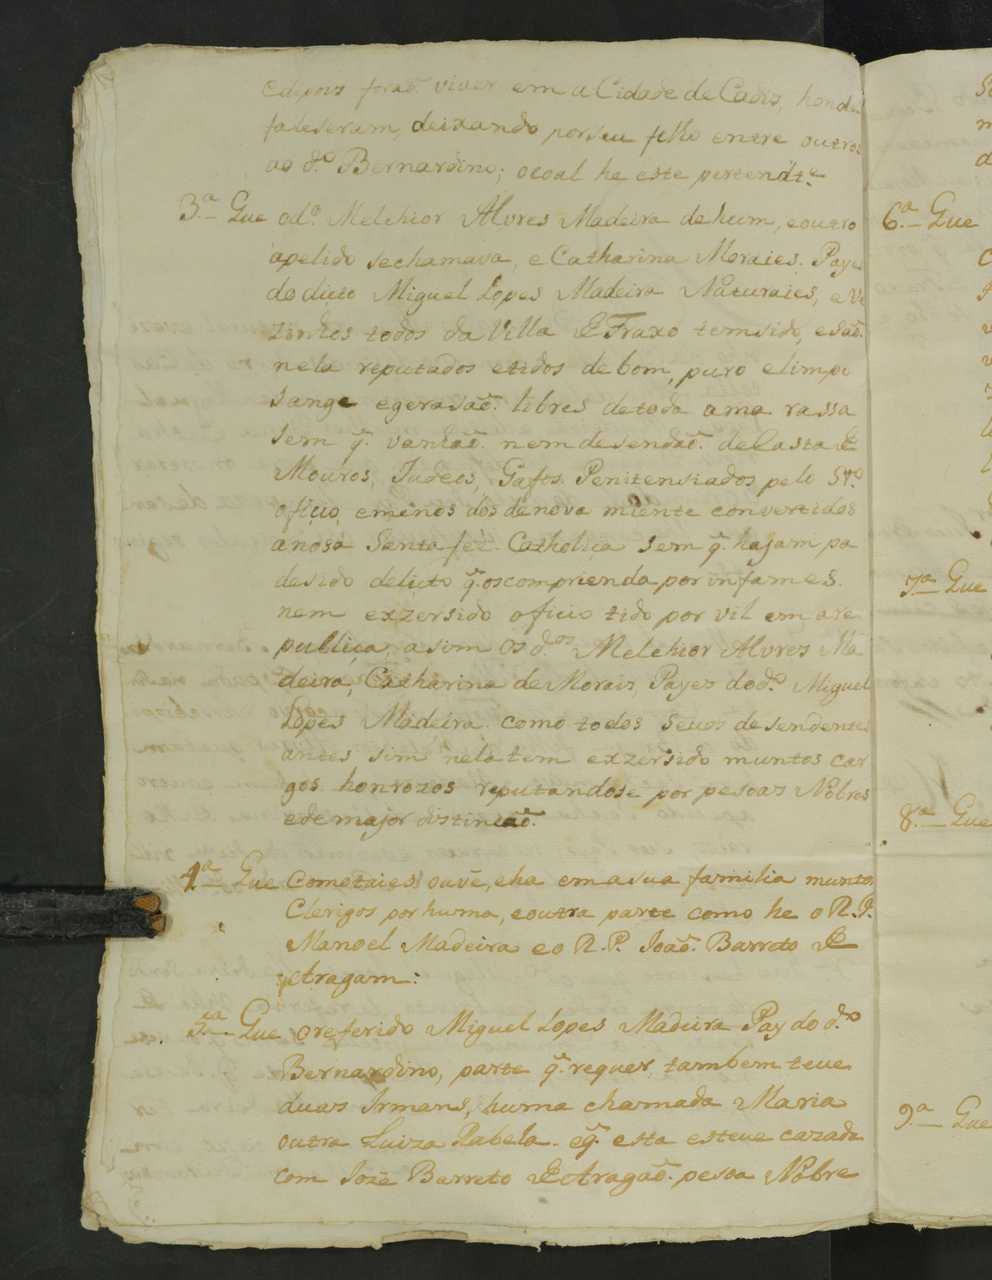 edepois foraõ. viuer em a Cidade de Cadis, honde
faleseram, deixando por seu filho entre outros
ao d.º Bernardino; ocoal he este pertend.te
3.ª Que od.º Melchior Alvres Madeira de hum, eoutro
apelido sechamava, e Catharina Moraies. Payes
do dicto Miguel Lopes Madeira Naturaies, e Ve
zinhos todos da Villa de Fraxo temsido, esaõ.
nela reputados etidos de bom, puro elimpo
sange egerasaõ. libres detoda a ma rassa
sem q̃. vandaõ. nem desendaõ. de Casta de
Mouros, Judeos, Gafos. Penitensiados pelo St.º
oficio, emenos dos denova miente convertidos
anosa Santa feè. Catholica sem q̃. hajam pa
desido delicto q̃. oscomprienda por infames.
nem exzersido oficio tido por vil em are
publica, a sim os d.os Melchior Alvres Ma
deira, Catharina de Morais, Payes dod.º Miguel
Lopes Madeira como todos seuos desendentes
antes, sim nela tem exzersido muntos car
gos honrozos reputandose por pesoas Nobres
edemajor distinsaõ.
4.ª Que Cometaies ouve, eha emasua familia muntos
Clerigos por huma, eoutra parte como he o R. P.
Manoel Madeira eo R. P. Joaõ. Barreto de
Aragam:
5.ª Que oreferido Miguel Lopes Madeira Pay do d.º
Bernardino, parte q̃. requer, tambem teue
duas Irmans, huma chamada Maria
outra Luiza Rabela. eq̃. esta esteue cazada
com Jozè Barreto de Aragaõ. pesoa Nobre
6.ª Que
7.ª Que
8.ª Que
9.ª Que